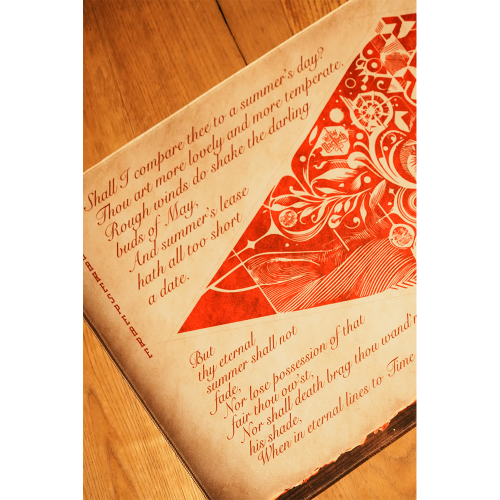 Shall I compare thee to a summer's day?
Thou art more lovely and more temperate.
Rough winds do shake the darling
buds of May,
And summer's lease
hath all too short
a date.
But
thy eternal
summer shall not
fade,
Nor lose possession of that
fair thou ow'st,
Nor shall death brag thou wand'r
his shade,
When in eternal lines to Time